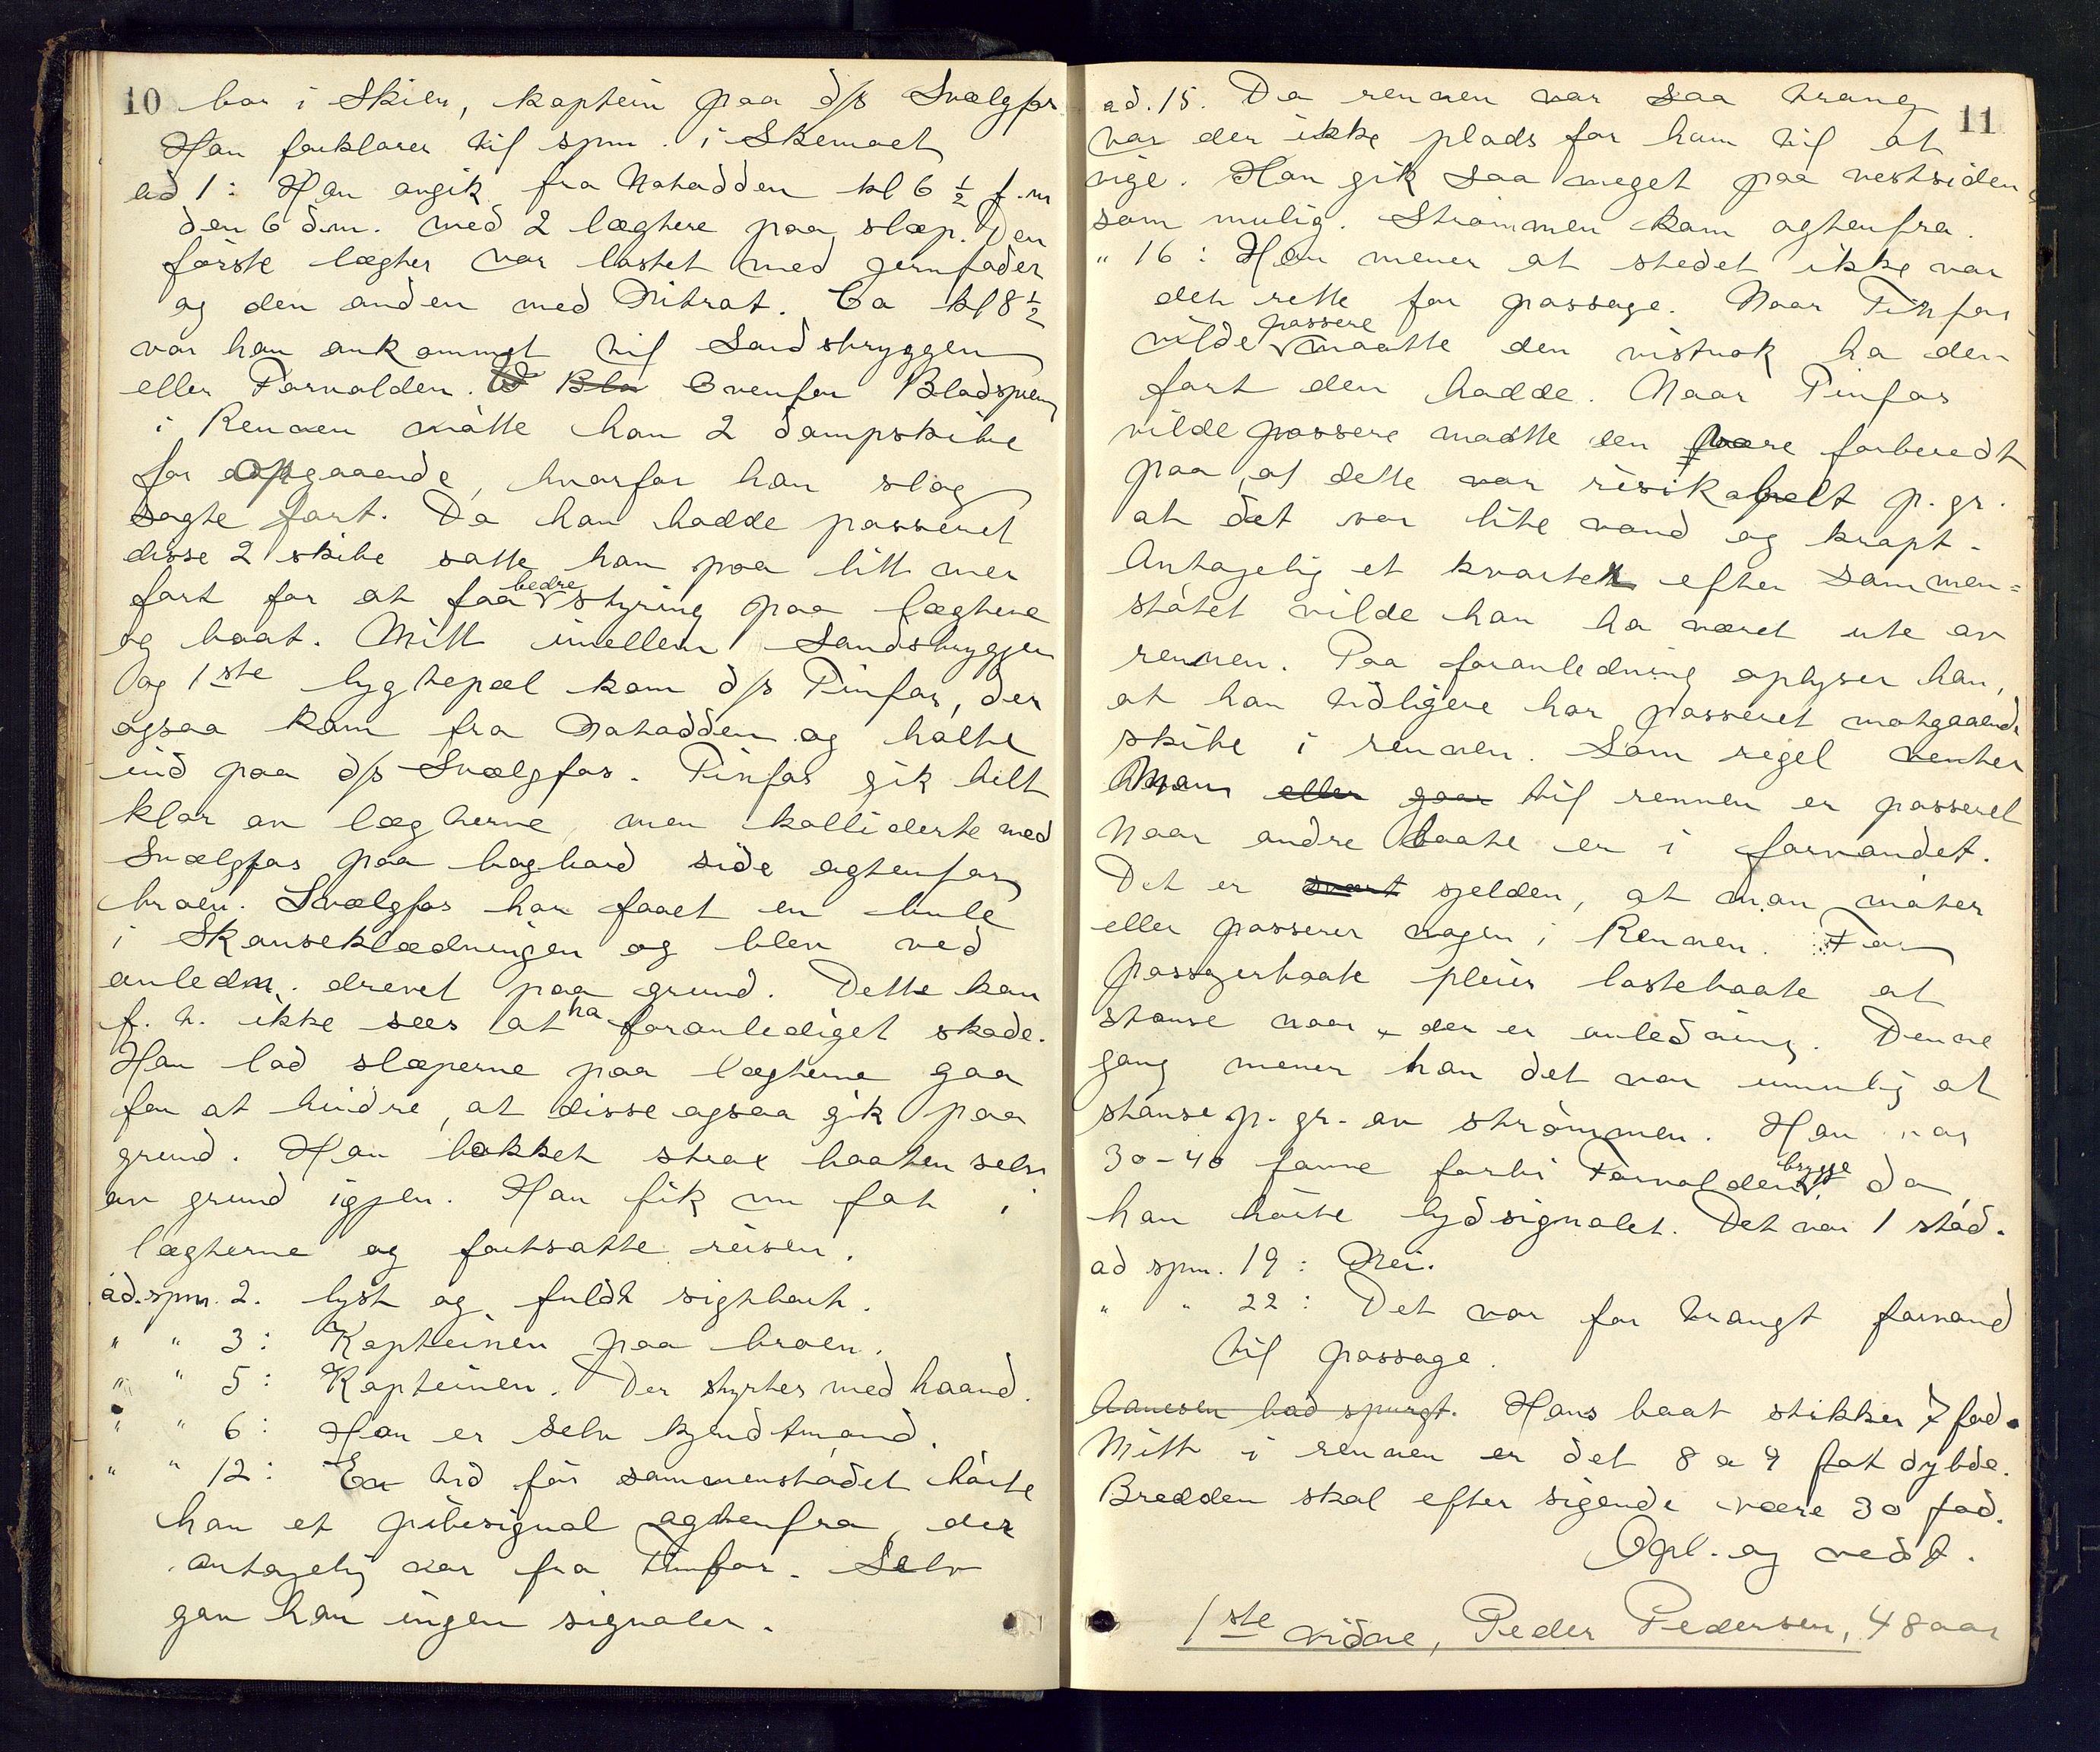 10 bor i Skien, kaptein paa d/s Svælgfos
Han forklarer til spm. i Skemaet
ad 1: Han avgik fra Notodden kl 6 ½ f.m
den 6 d.m. med 2 lægtere paa slæp. Den
første lægter var lastet med jernfader
og den anden med Nitrat. Ca kl 8 ½
var han ankommet til Sandsbryggen
eller Farvolden. Bla Ovenfor Bladspræng
i Rennen møtte han 2 dampskibe
for opgaaende, hvorfor han slog
sagte fart. Da han hadde passeret
disse 2 skibe satte han paa litt mer
fart for at faa bedre styring paa lægterne
og baat. Mitt imellem Sandsbryggen
og 1ste lygtepæl kom d/s Tinfos, der
ogsaa kom fra Notodden og holdte
ind paa d/s Svælgfos. Tinfos gik helt
klar av lægterne, men kolliderte med
Svælgfos paa bagbord side agtenfor
broen. Svælgfos har faaet en bule
i Skanseklædningen og blev ved
anledn. drevet paa grund. Dette kan
f. t. ikke sees at ha foranlediget skade.
Han lod slæperne paa lægterne gaa
for at hindre, at disse ogsaa gik paa
grund. Han bakket strax baaten selv
av grund igjen. Han fik nu fat i
lægterne og fortsatte reisen.
ad. spm. 2. lyst og fuldt sigtbart.
" " 3: Kapteinen paa broen.
" " 5: Kapteinen. Der styrtes med haand.
" " 6: Han er selv kjendtmand.
" " 12: En tid før sammenstødet hørte
han et pibesignal agtenfra, der
antagelig var fra Tinfos. Selv
gav han ingen signaler.
11
ad. 15. Da rennen var saa trang
var der ikke plads for ham til at
vige. Han gik saa meget paa vestsiden
som mulig. Strømmen kom agtenfra.
" 16: Han mener at stedet ikke var
det rette for passage. Naar Tinfos
vilde passere maatte den vistnok ha den
fart den hadde. Naar Tinfos
vilde passere maatte den være forberedt
paa, at dette var risikabelt p. gr.
at det var lite vand og krapt.
Antagelig et kvarter efter sammen=
støtet vilde han ha været ute av
rennen. Paa foranledning oplyser han,
at han tidligere har passeret motgaaende
skibe i rennen. Som regel venter
Man eller gaar til rennen er passeret
Naar andre baate er i farvandet.
Det er svært sjelden, at man møter
eller passerer nogen i Rennen. For
passagerbaate pleier lastebaate at
stanse naar der er anledning. Denne
gang mener han det var umulig at
stanse p. gr. av strømmen. Han var
30-40 favne forbi Farvoldens brygge da
han hørte lydsignalet. Det var 1 stød.
ad spm. 19: Nei.
" " 22: Det var for trangt farvand
til passage.
Aanesen bad spurgt. Hans baat stikker 7 fod.
Mitt i rennen er det 8 a 9 fot dybde.
Bredden skal efter sigende være 30 fod.
Opl. og vedt.
1ste vidne, Peder Pedersen, 48 aar